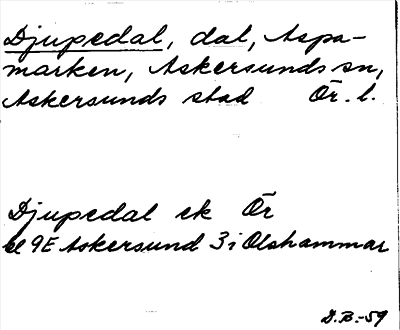 Djupedal, dal, Aspa-
marken, Askersunds sn,
Askersunds stad Ör. l.
Djupedal ek Ör
bl 9E Askersund 3 i Olshammar
D.B.-59